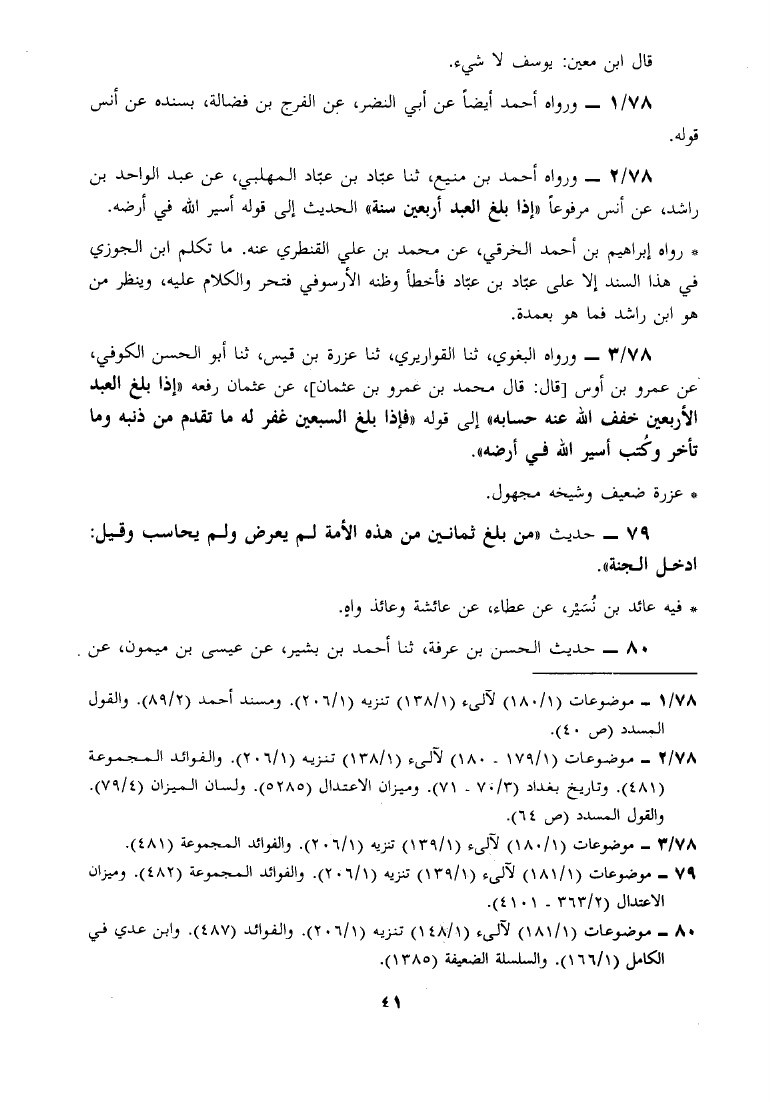 قال ابن معين: يوسف لا شيء.
١/٧٨ — ورواه أحمد أيضاً عن أبي النضر، عن الفرج بن فضالة، بسنده عن أنس
قوله.
٢/٧٨ — ورواه أحمد بن منيع، ثنا عبّاد بن عبّاد المهلبي، عن عبد الواحد بن
راشد، عن أنس مرفوعاً «إذا بلغ العبد أربعين سنة» الحديث إلى قوله أسير الله في أرضه.
* رواه إبراهيم بن أحمد الخرقي، عن محمد بن علي القنطري عنه. ما تكلم ابن الجوزي
في هذا السند إلا على عبّاد بن عبّاد فأخطأ وظنه الأرسوفي فتحر والكلام عليه، وينظر من
هو ابن راشد فما هو بعمدة.
٣/٧٨ — ورواه البغوي، ثنا القواريري، ثنا عزرة بن قيس، ثنا أبو الحسن الكوفي،
عن عمرو بن أوس [قال: قال محمد بن عمرو بن عثمان]، عن عثمان رفعه «إذا بلغ العبد
الأربعين خفف الله عنه حسابه» إلى قوله «فإذا بلغ السبعين غفر له ما تقدم من ذنبه وما
تأخر وكُتب أسير الله في أرضه».
* عزرة ضعيف وشيخه مجهول.
٧٩ — حديث «من بلغ ثمانين من هذه الأمة لم يعرض ولم يحاسب وقيل:
ادخل الجنة».
* فيه عائذ بن نُسَيْر، عن عطاء، عن عائشة وعائذ واهٍ.
٨٠ — حديث الحسن بن عرفة، ثنا أحمد بن بشير، عن عيسى بن ميمون، عن
١/٧٨ - موضوعات (١٨٠/١) لآلىء (١٣٨/١) تنزيه (٢٠٦/١). ومسند أحمد (٨٩/٢). والقول
المسدد (ص ٤٠).
٢/٧٨ - موضوعات (١٧٩/١ - ١٨٠) لآلىء (١٣٨/١) تنزيه (٢٠٦/١). والفوائد المجموعة
(٤٨١). وتاريخ بغداد (٧٠/٣ - ٧١). وميزان الاعتدال (٥٢٨٥). ولسان الميزان (٧٩/٤).
والقول المسدد (ص ٦٤).
٣/٧٨ - موضوعات (١٨٠/١) لآلىء (١٣٩/١) تنزيه (٢٠٦/١). والفوائد المجموعة (٤٨١).
٧٩ - موضوعات (١٨١/١) لآلىء (١٣٩/١) تنزيه (٢٠٦/١). والفوائد المجموعة (٤٨٢). وميزان
الاعتدال (٣٦٣/٢ - ٤١٠١).
٨٠ - موضوعات (١٨١/١) لآلىء (١٤٨/١) تنزيه (٢٠٦/١). والفوائد (٤٨٧). وابن عدي في
الكامل (١٦٦/١). والسلسلة الضعيفة (١٣٨٥).
٤١